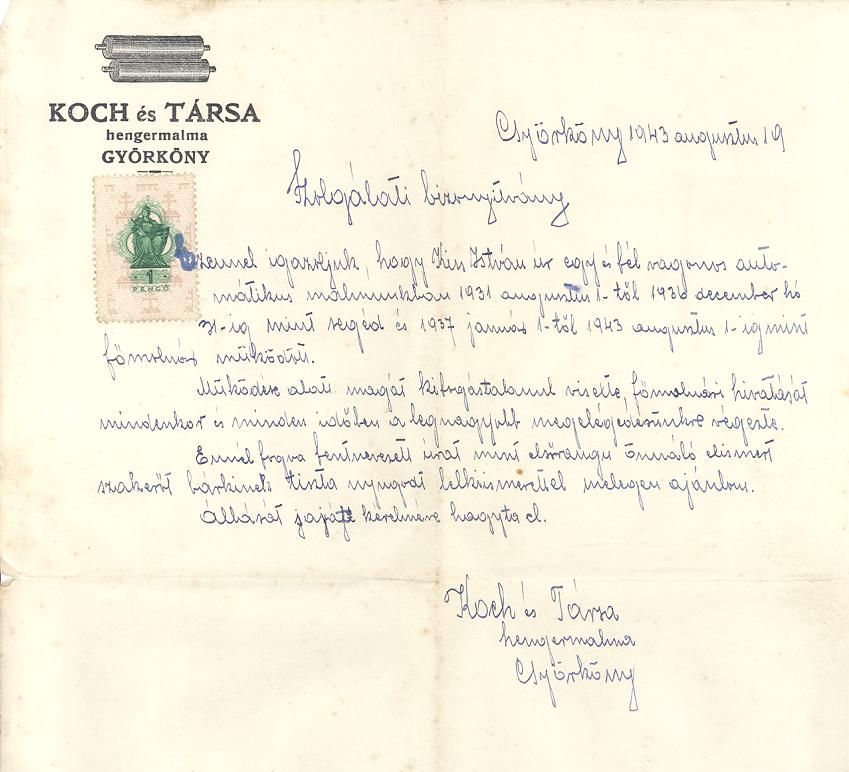 KOCH és TÁRSA
hengermalma
GYÖRKÖNY
Györköny 1943 augusztus 19
Szolgálati bizonyitvány
1
PENGŐ
Ezennel igazoljuk, hogy Kiss István úr egy és fél vagonos auto-
mátikus malmunkban 1931 augusztus 1-től 1936 december hó
31-ig mint segéd és 1937 január 1-től 1943 augusztus 1-ig mint
főmolnár működött.
Működése alatt magát kifogástalanul viselte, főmolnári hivatását
mindenkor és minden időben a legnagyobb megelégedésünkre végezte.
Ennél fogva fentnevezett urat mint elsőrangu önnáló elismert
szakerőt bárkinek tiszta nyugodt lelkiismerettel melegen ajánlom.
Állását saját kérelmére hagyta el.
Koch és Társa
hengermalma
Györköny